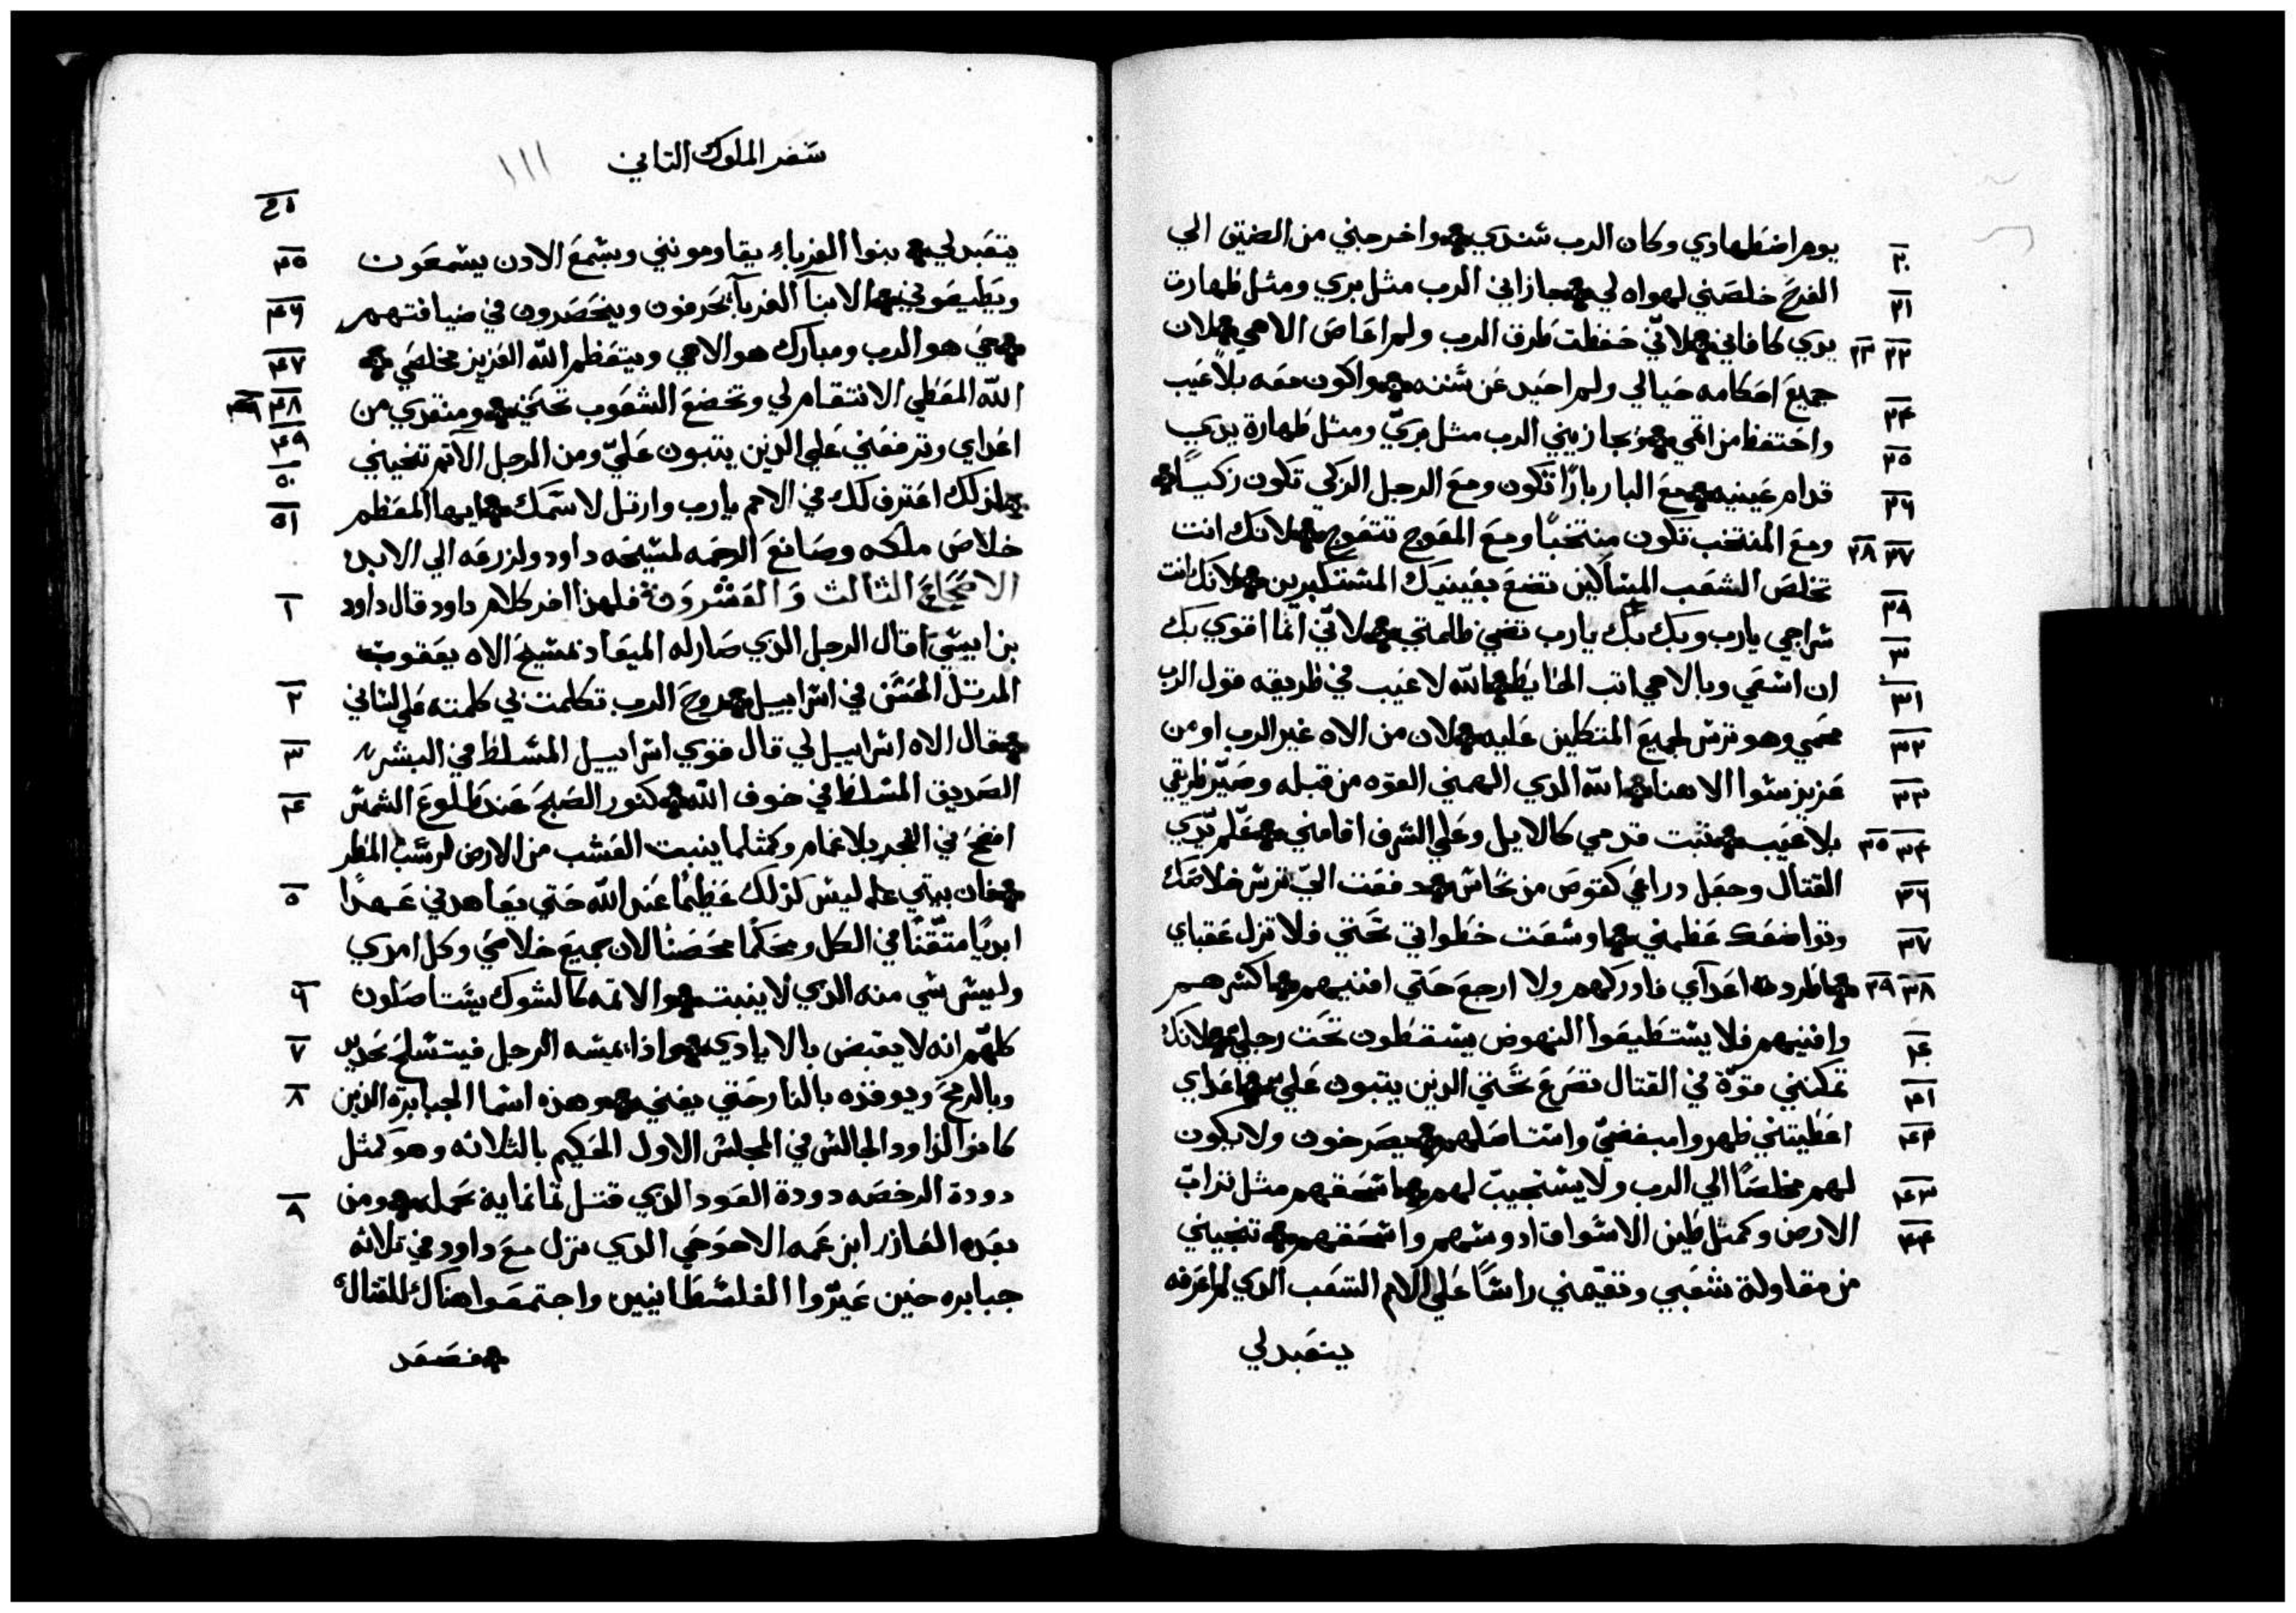 يوم اضطهادي وكان الرب سندي واخرجني من الضيق الي
٢٠
الفرج خلصني لهواه لي جازاني الرب مثل بري ومثل طهارة
٢١
يدي كافاني لاني حفظت طرق الرب ولم اعاص الاهي لان
٢٢ ٢٣
جميع احكامه حيالي ولم احيد عن سننه واكون معه بلا عيب
٢٤
واحتفظ من اثمي وجازيني الرب مثل بري ومثل طهارة يدي
٢٥
قدام عينيه مع البار بارًا تكون ومع الرجل الزكي تكون زكيًا
٢٦
ومع المنتخب تكون منتخبًا ومع المعوج تتعوج لانك انت
٢٧ ٢٨
تخلص الشعب المساكين تضع بعينيك المستكبرين لانك انت
٢٩
سراجي يارب وبك بك يارب تضي ظلمتي لاني انما اقوي بك
٣٠
ان اسعي وبالاهي اثب الحايط الله لا عيب في طريقه قول الرب
٣١
محمي وهو ترس لجميع المتكلين عليه لان من الاه غير الرب او من
٣٢
عزيز سوا الاهنا الله الذي الهمني القوه من قبله وصير طريقي
٣٣
بلا عيب مثبت قدمي كالايل وعلي الشرف اقامني معلم يدي
٣٤ ٣٥
القتال وجعل دراعي كقوس من نحاس دفعت الي ترس خلاصك
٣٦
وتواضعك عظمني اوسعت خطواتي تحتي فلا تزل عقباي
٣٧
اطرد اعدآي فادركهم ولا ارجع حتي افنيهم اكسرهم
٣٨ ٣٩
وافنيهم فلا يستطيعوا النهوض يسقطون تحت رجلي لانك
٤٠
تمكنني قوة في القتال تصرع تحتي الذين يثبون علي اعداي
٤١
اعطيتني ظهروا مبغضي واستاصلهم يصرخون ولا يكون
٤٢
لهم مخلصًا الي الرب ولا يستجيب لهم اسحقهم مثل تراب
٤٣
الارض وكمثل طين الاسواق ادوسهم واسحقهم تنجيني
٤٤
من مقاولة شعبي وتقيمني راسًا علي الامم الشعب الذي لم اعرفه
يتعبد لي
سفر الملوك التاني
١١١
يتعبد لي بنوا الغرباء يقاومونني وبسمع الادن يسمعون
٤٥
ويطيعوني الابنآ الغربآ يخرفون وينحصرون في ضيافتهم
٤٦
حي هو الرب ومبارك هو الاهي ويتعظم الله العزيز مخلصي
٤٧
الله المعطي الانتقام لي وتخضع الشعوب تحتي ومنقدي من
٤٨
اعداي وترفعني علي الذين يثبون علي ومن الرجل الاثم تنجيني
٤٩
لذلك اعترف لك في الامم يارب وارتل لاسمك ايها المعظم
٥٠ ٥١
خلاص ملكه وصانع الرحمه لمسيحه داود ولزرعه الي الابد
الاصحاح الثالث والعشرون فلهذا اخر كلام داود قال داود
١
بن ايسي قال الرجل الذي صار له الميعاد لمسيح الاه يعقوب
المرتل الحسن في اسراييل روح الرب تكلمت بي كلمته علي لساني
٢
قال الاه اسراييل لي قال قوي اسراييل المسلط في البشر
٣
الصديق المسلط في خوف الله كنور الصبح عند طلوع الشمس
٤
اضح في الفجر بلا غمام وكمثلما ينبت العشب من الارض لرش المطر
فان بيتي ليس كذلك عظيمًا عند الله حتي يعاهدني عهدًا
٥
ابديًا متقنًا في الكل ومحكمًا محصنًا لان جميع خلاصي وكل امري
وليس شي منه الذي لا ينبت والاثمه كالشوك يستاصلون
٦
كلهم انه لا يقبض بالايادي واذا يمسه الرجل فيتسلح بحديد
٧
وبالرمح ويوقده بالنار حتي يفني وهذه اسما الجبابرة الذين
٨
كانوا لداود الجالس في المجلس الاول الحكيم بالثلاثه وهو كمثل
دودة الرخصه دودة العود الذي قتل ثمانمايه بحمله ومن
٩
بعده العازر ابن عمه الاحوحي الذي نزل مع داود في ثلاثه
جبابره حين عيروا الفلسطانيين واجتمعوا هناك للقتال
فصعد